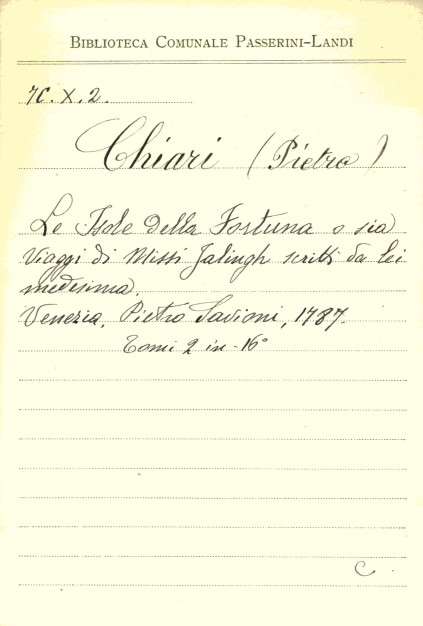 BIBLIOTECA COMUNALE PASSERINI-LANDI
7C. X. 2.
Chiari (Pietro)
Le Isole della Fortuna o sia
Viaggi di Missi Jalingh scritti da lei
medesima.
Venezia, Pietro Savioni, 1787.
Tomi 2 in-16°
C